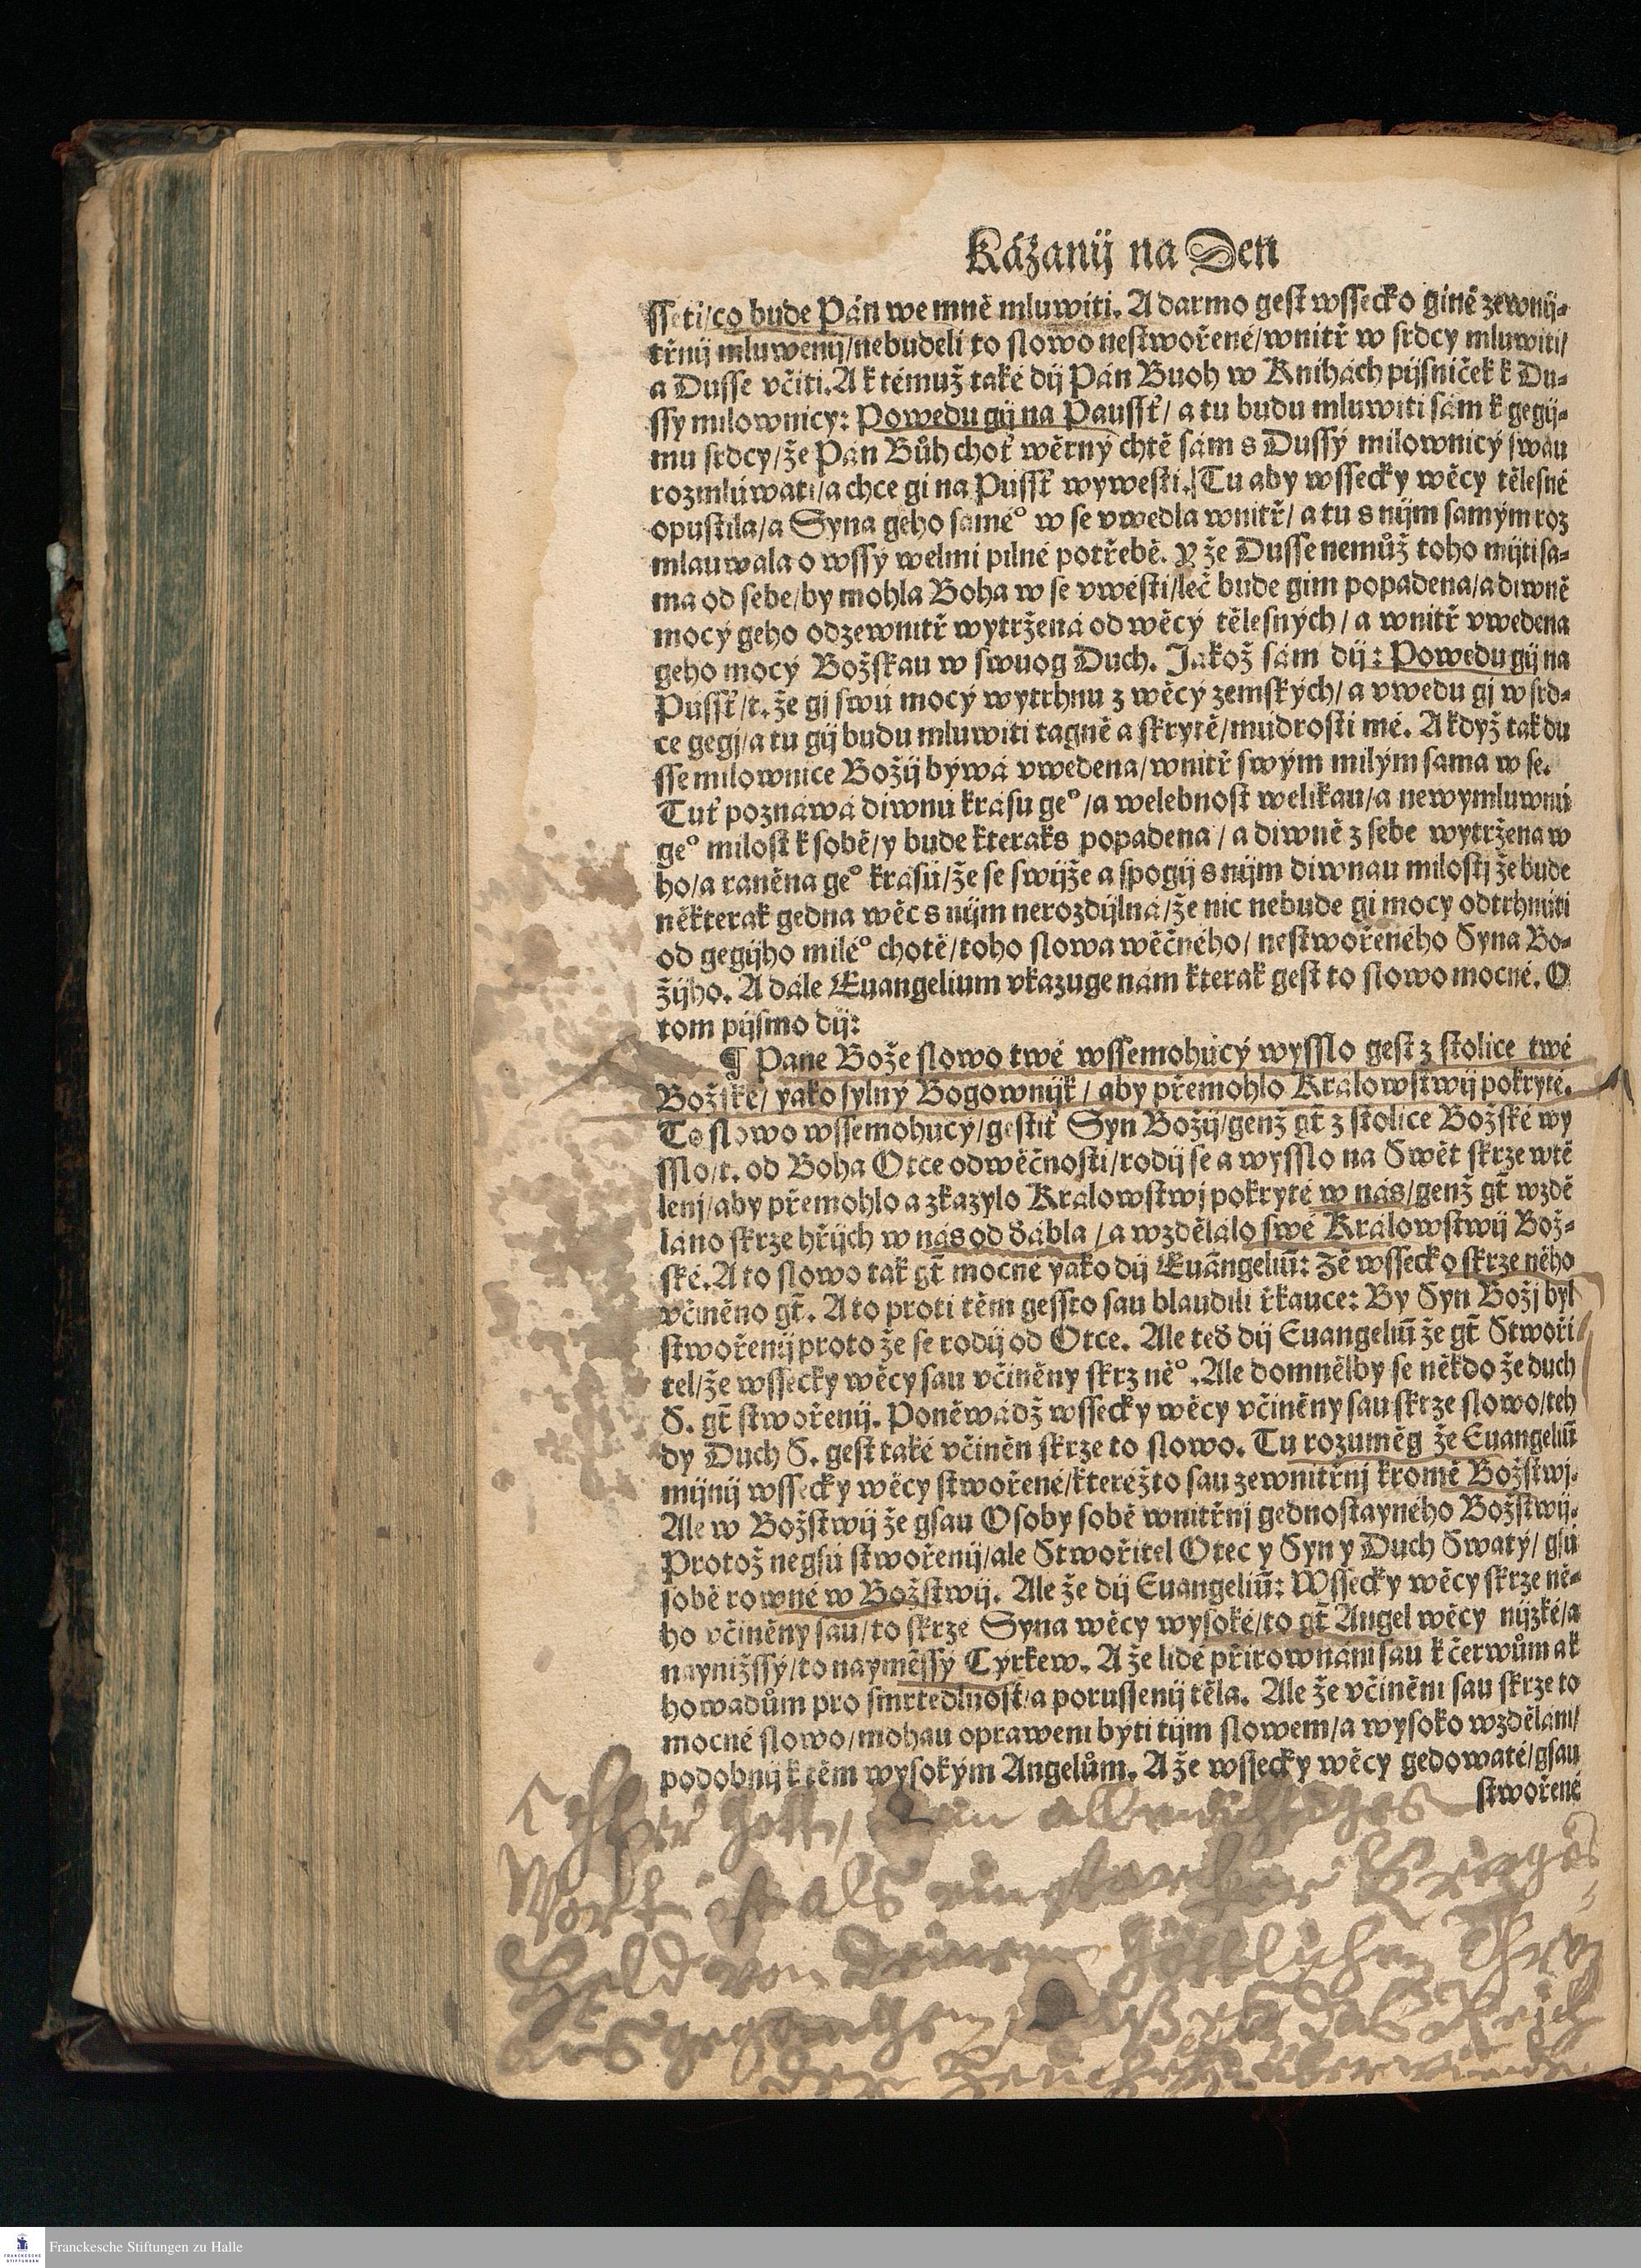 Kázanij na Den
sseti/co bude Pán we mně mluwiti. A darmo gest wssecko giné zewnij-
třnij mluwenij/nebudeli to slowo nestwořené/wnitř w srdcy mluwiti/
a Dusse včiti. A k témuž také dij Pán Buoh w Knihách pijsniček k Du-
ssy milownicy: Powedu gij na Paussť/ a tu budu mluwiti sám k gegij-
mu srdcy/že Pán Bůh choť wěrný chtě sám s Dussý milownicý swau
rozmlúwati/a chce gi na Pússť wywesti. Tu aby wssecky wěcy tělesné
opustila/a Syna geho samé° w se vwedla wnitř/ a tu s nijm samým roz
mlauwala o wssý welmi pilné potřebě. Y že Dusse nemůž toho mijti sa-
ma od sebe/by mohla Boha w se vwésti/leč bude gim popadena/a diwně
mocý geho odzewnitř wytržená od wěcý tělesných/ a wnitř vwedena
geho mocý Božskau w swuog Duch. Jakož sám dij: Powedu gij na
Pússť/t. že gj swú mocý wytrhnu z wěcý zemských/ a vwedu gj w srd-
ce gegj/a tu gij budu mluwiti tagně a skrytě/múdrosti mé. A když tak du
sse milownice Božij býwá vwedena/wnitř swým milým sama w se.
Tuť poznáwá diwnú krásu ge°/a welebnost welikau/a newymluwnú
ge° milost k sobě/y bude kteraks popadena/ a diwně z sebe wytržena w
ho/a raněna ge° krású/že se swijže a spogij s nijm diwnau milostj že bude
některak gedna wěc s nijm nerozdijlná/že nic nebude gi mocy odtrhnúti
od gegijho milé° chotě/toho slowa wěčného/ nestwořeného Syna Bo-
žijho. A dále Euangelium vkazuge nám kterak gest to slowo mocné. O
tom pijsmo dij:
¶ Pane Bože slowo twé wssemohúcý wysslo gest z stolice twé
Božské/ yako sylný Bogownijk/ aby přemohlo Králowstwij pokryté.
To slowo wssemohúcý/gestiť Syn Božij/genž gt̃ z stolice Božské wy
sslo/t. od Boha Otce odwěčnosti/rodij se a wysslo na Swět skrze wtě
lenj/aby přemohlo a zkazylo Králowstwj pokryté w nás/genž gt̃ wzdě
láno skrze hřijch w nás od ďábla/a wzdělalo swé Králowstwij Bož-
ské. A to slowo tak gt̃ mocné yako dij Euãngeliũ: Zě wssecko skrze něho
včiněno gt̃. A to proti těm gessto sau blaudili řkauce: By Syn Božj byl
stwořenij proto že se rodij od Otce. Ale teď dij Euangeliũ že gt̃ Stwoři
tel/že wssecky wěcy sau včiněny skrz ně°. Ale domnělby se někdo že duch
S. gt̃ stwořenij. Poněwádž wssecky wěcy včiněny sau skrze slowo/teh
dy Duch S. gest také včiněn skrze to slowo. Tu rozuměg že Euangeliũ
mijnij wssecky wěcy stwořené/kteréžto sau zewnitřnj kromě Božstwj.
Ale w Božstwij že gsau Osoby sobě wnitřnj gednostayného Božstwij.
Protož negsú stwořenij/ale Stwořitel Otec y Syn y Duch Swatý/ gsú
sobě rowné w Božstwij. Ale že dij Euangeliũ: Wssecky wěcy skrze ně-
ho včiněny sau/to skrze Syna wěcy wysoké/to gt̃ Angel wěcy nijzké/a
naynižssý/to naymēssý Cyrkew. A že lidé přirownáni sau k čerwům a k
howadům pro smrtedlnost/a porussenij těla. Ale že včiněni sau skrze to
mocné slowo/mohau oprawení býti tijm slowem/a wysoko wzděláni/
podobnij k těm wysokým Angelům. A že wssecky wěcy gedowaté/gsau
stwořené
Herr Gott, dein allmächtiges
Wort ist als ein starcker Krieges
Held von deinem göttlichen Thron
ausgegangen, daß es das Reich
der Heucheley überwinde
Franckesche Stiftungen zu Halle